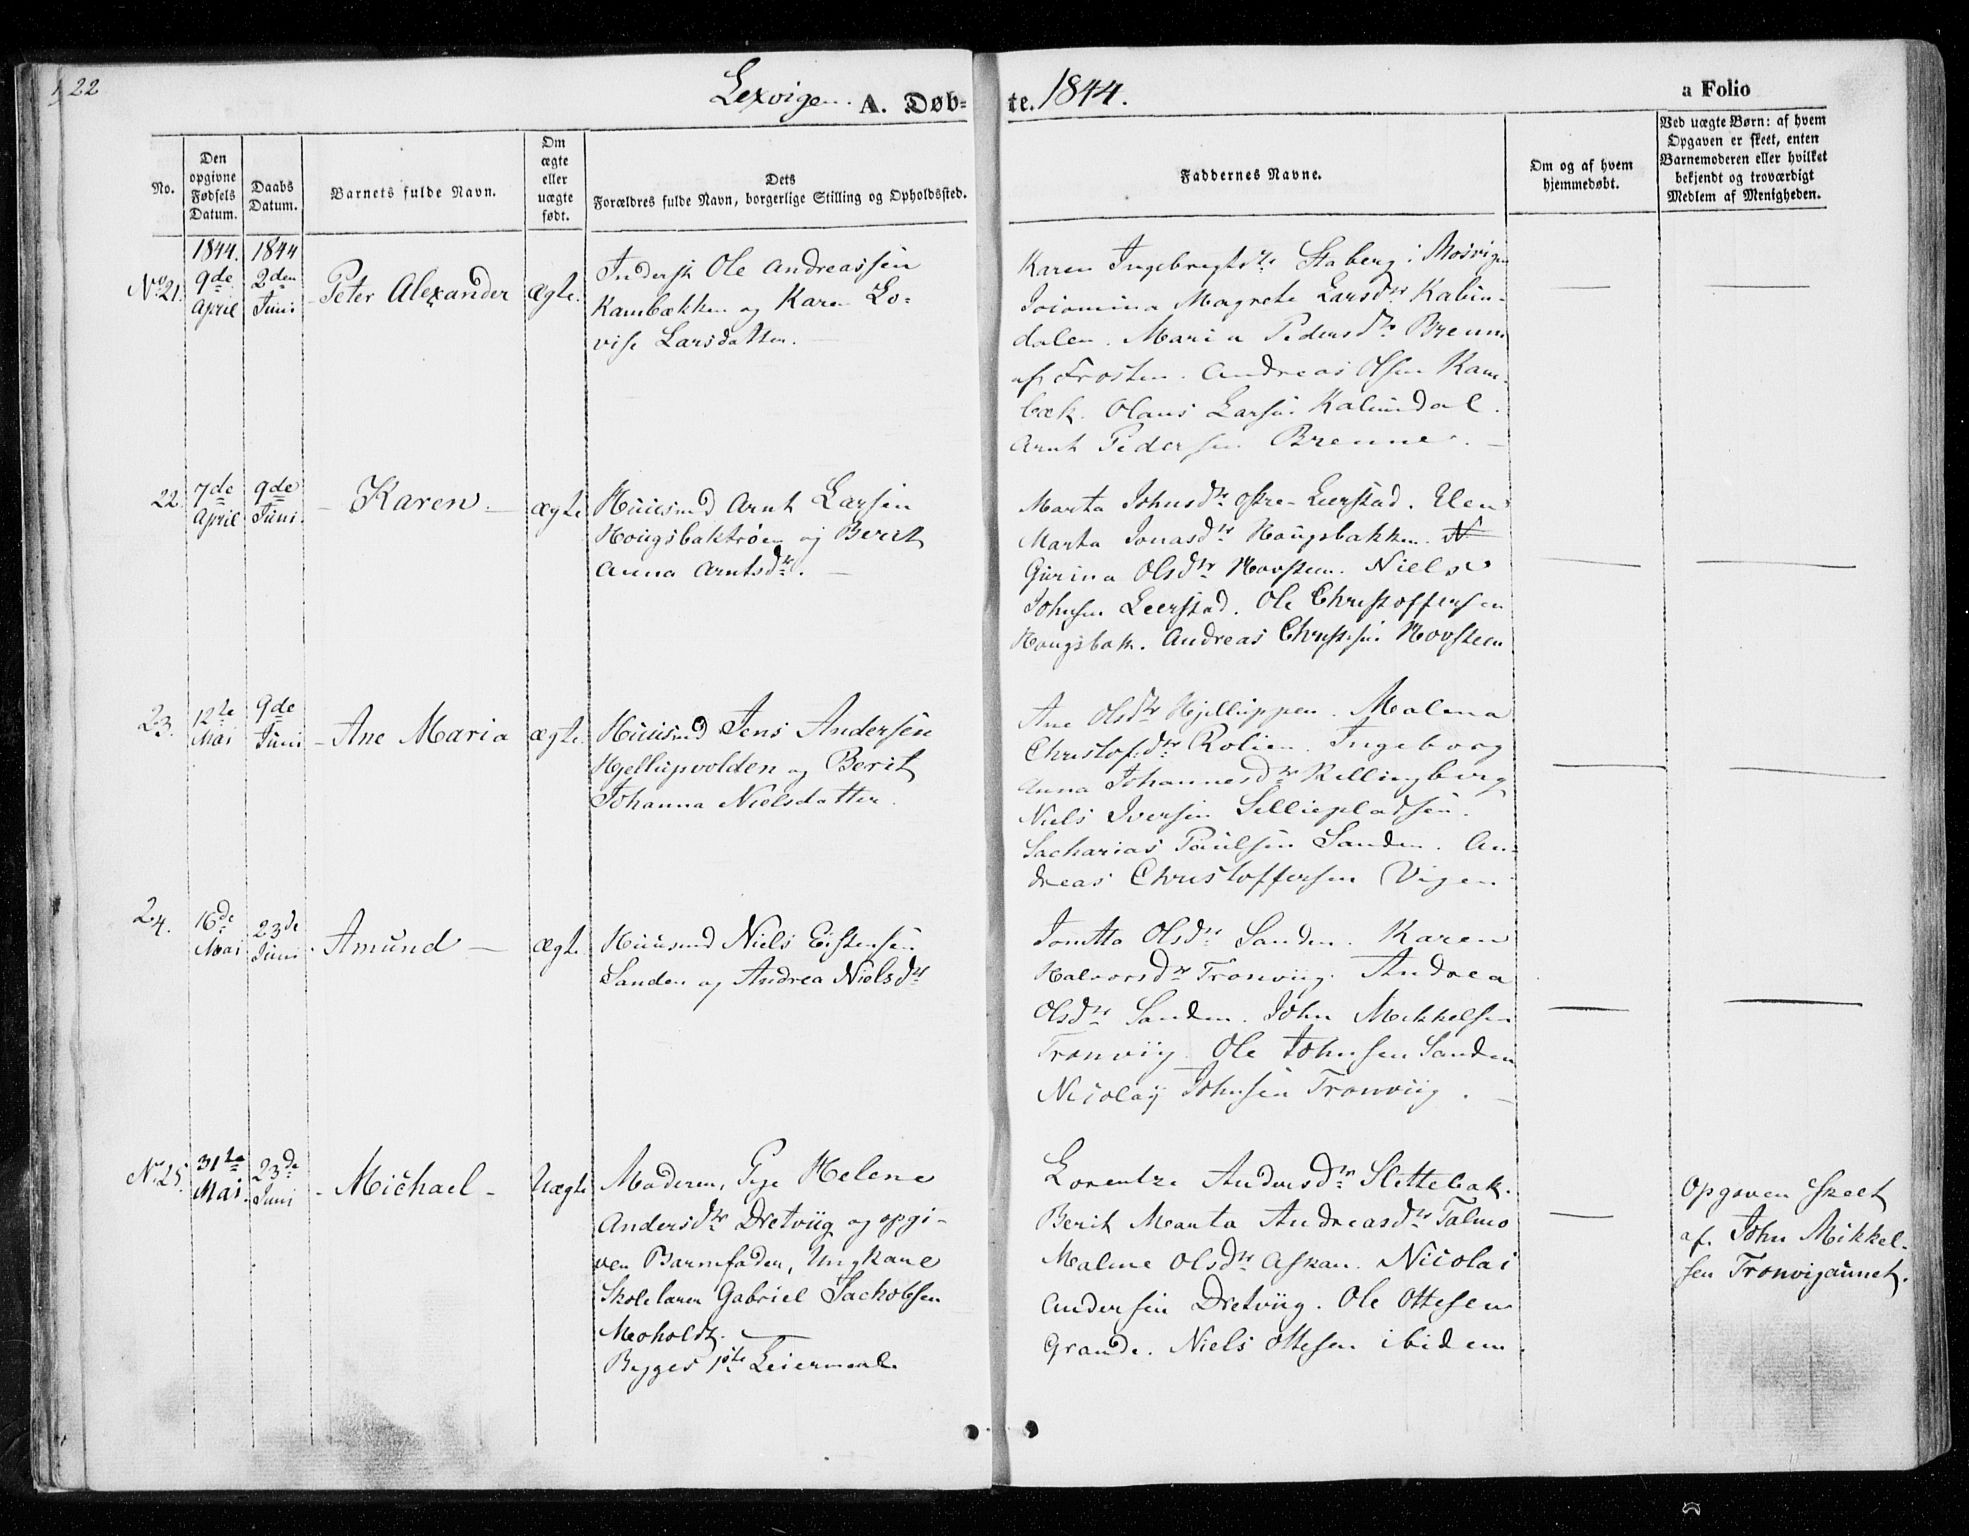 22
Lexvigen. A. Døb-
te. 1844.
a Folio
No.
Den opgivne Fødsels Datum.
Daabs Datum.
Barnets fulde Navn.
Om ægte eller uægte født.
Dets
Forældres fulde Navn, borgerlige Stilling og Opholdssted.
Faddernes Navne.
Om og af hvem hjemmedøbt.
Ved uægte Børn: af hvem
Opgaven er skeet, enten
Barnemoderen eller hvilket
bekjendt og troværdigt
Medlem af Menigheden.
1844. 1844
No 21. 9de April 2den Juni Peter Alexander ægte.
Inderst Ole Andreassen
Kambækken og Karen Lo-
vise Larsdatter.
Karen Ingebregtsdr Staberg i Mosvigen
Magrete Larsdr Kalun-
dalen. Maria Pedersdr Brenne
af Frosten. Andreas Olsen Kam-
bæk. Olaus Larsen Kalundal.
Arnt Pedersen Brenne.
22. 7de April 9de Juni Karen ægte
Huusmd Arnt Larsen
Hougsbaktrøen og Berit
Anna Arntsdr.
Marta Johnsdr østre Leerstad. Elen
Marta Jonasdr Hougsbakken. N
Gurina Olsdr Hovsteen. Niels
Johnsen Leerstad. Ole Christoffersen
Hougsbak. Andreas Christsen Hovsteen
23. 12te Mai 9de Juni Ane Maria ægte.
Huusmd Jens Andersen
Hjellupvolden og Berit
Johanna Nielsdatter.
Ane Olsdr Hjelluppen. Malena
Christofdr Rolien. Ingeborg
Anna Johannesdr Killingberg
Niels Iversen Selliepladsen.
Sacharias Paulsen Sanden. An-
dreas Christoffersen Vigen
24. 16de Mai 23de Juni Amund ægte
Huusmd Niels Eistensen
Sanden og Andrea Nielsdr
Jonetta Olsdr Sanden. Karen
Halvorsdr Tronviig. Andrea
Olsdr Sanden. John Mikkelsen
Tronviig. Ole Johnsen Sanden
Nicolay Johnsen Tronviig.
No 25. 31te Mai. 23de Juni Michael Uægte
Moderen, Pige Helene
Andersdr Dretviig og opgi-
ven Barnefader, Ungkarl
Skolelærer Gabriel Jackobsen
Meoholdt.
Begges 1ste Leiermaal.
Lorentze Andersdr Slettebak.
Berit Marta Andreasdr Talmo
Malene Olsdr Askan. Nicolai
Andersen Dretviig. Ole Ottesen
Grande. Niels Ottesen ibidem.
Opgaven skeet
af John Mikkel-
sen Tronvigaunet.